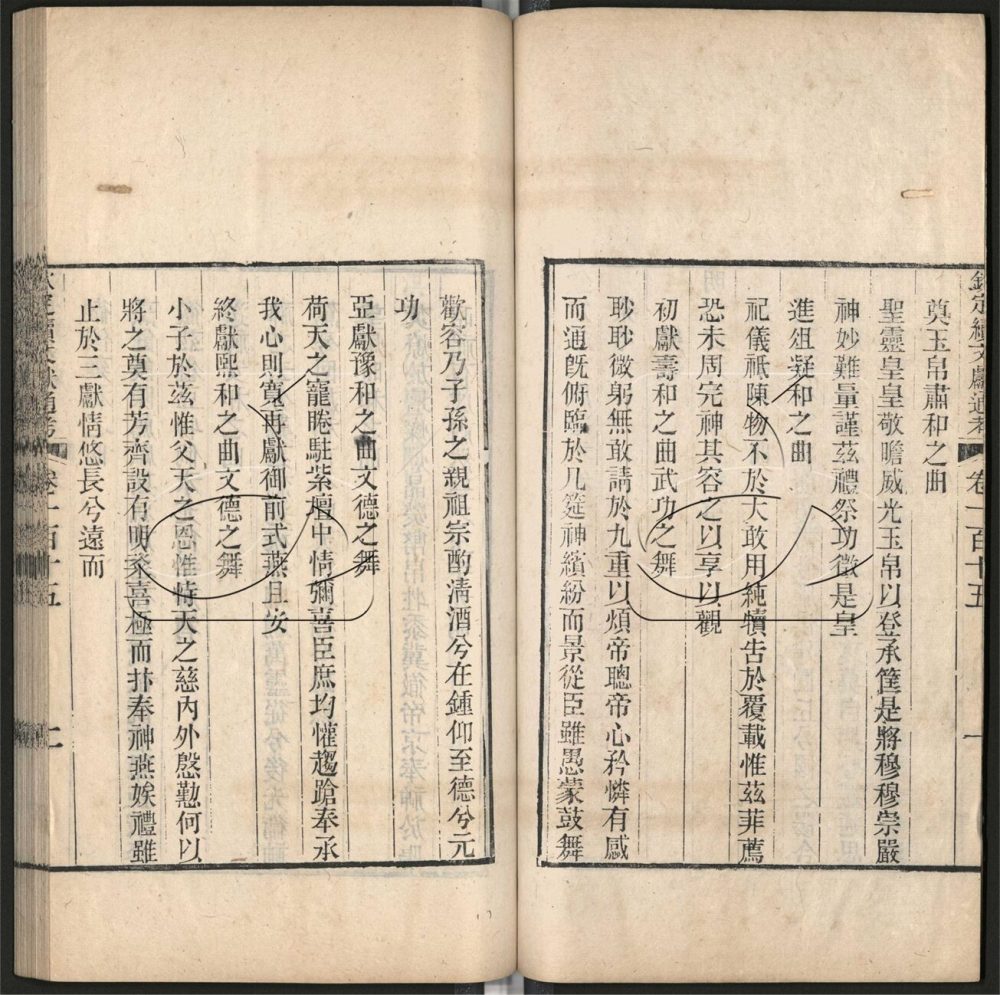 欽定續文獻通考 卷一百十五 一
奠玉帛肅和之曲
聖靈皇皇敬瞻威光玉帛以登承筐是將穆穆崇嚴
神妙難量謹茲禮祭功徵是皇
進俎凝和之曲
祀儀祗陳物不於大敢用純犢告於覆載惟茲菲薦
恐未周完神其容之以享以觀
初獻壽和之曲武功之舞
眇眇微躬無敢請於九重以煩帝聰帝心矜憐有感
而通旣俯臨於几筵神繽紛而景從臣雖愚蒙鼓舞
歡容乃子孫之親祖宗酌清酒兮在鍾仰至德兮元
功
亞獻豫和之曲文德之舞
荷天之寵睠駐紫壇中情彌喜臣庶均懽趨蹌奉承
我心則寬再獻御前式燕且安
終獻熙和之曲文德之舞
小子於茲惟父天之恩惟恃天之慈內外慇懃何以
將之奠有芳齊設有明粢喜極而抃奉神燕娭禮雖
止於三獻情悠長兮遠而
定續文獻通考 卷一百十五 二